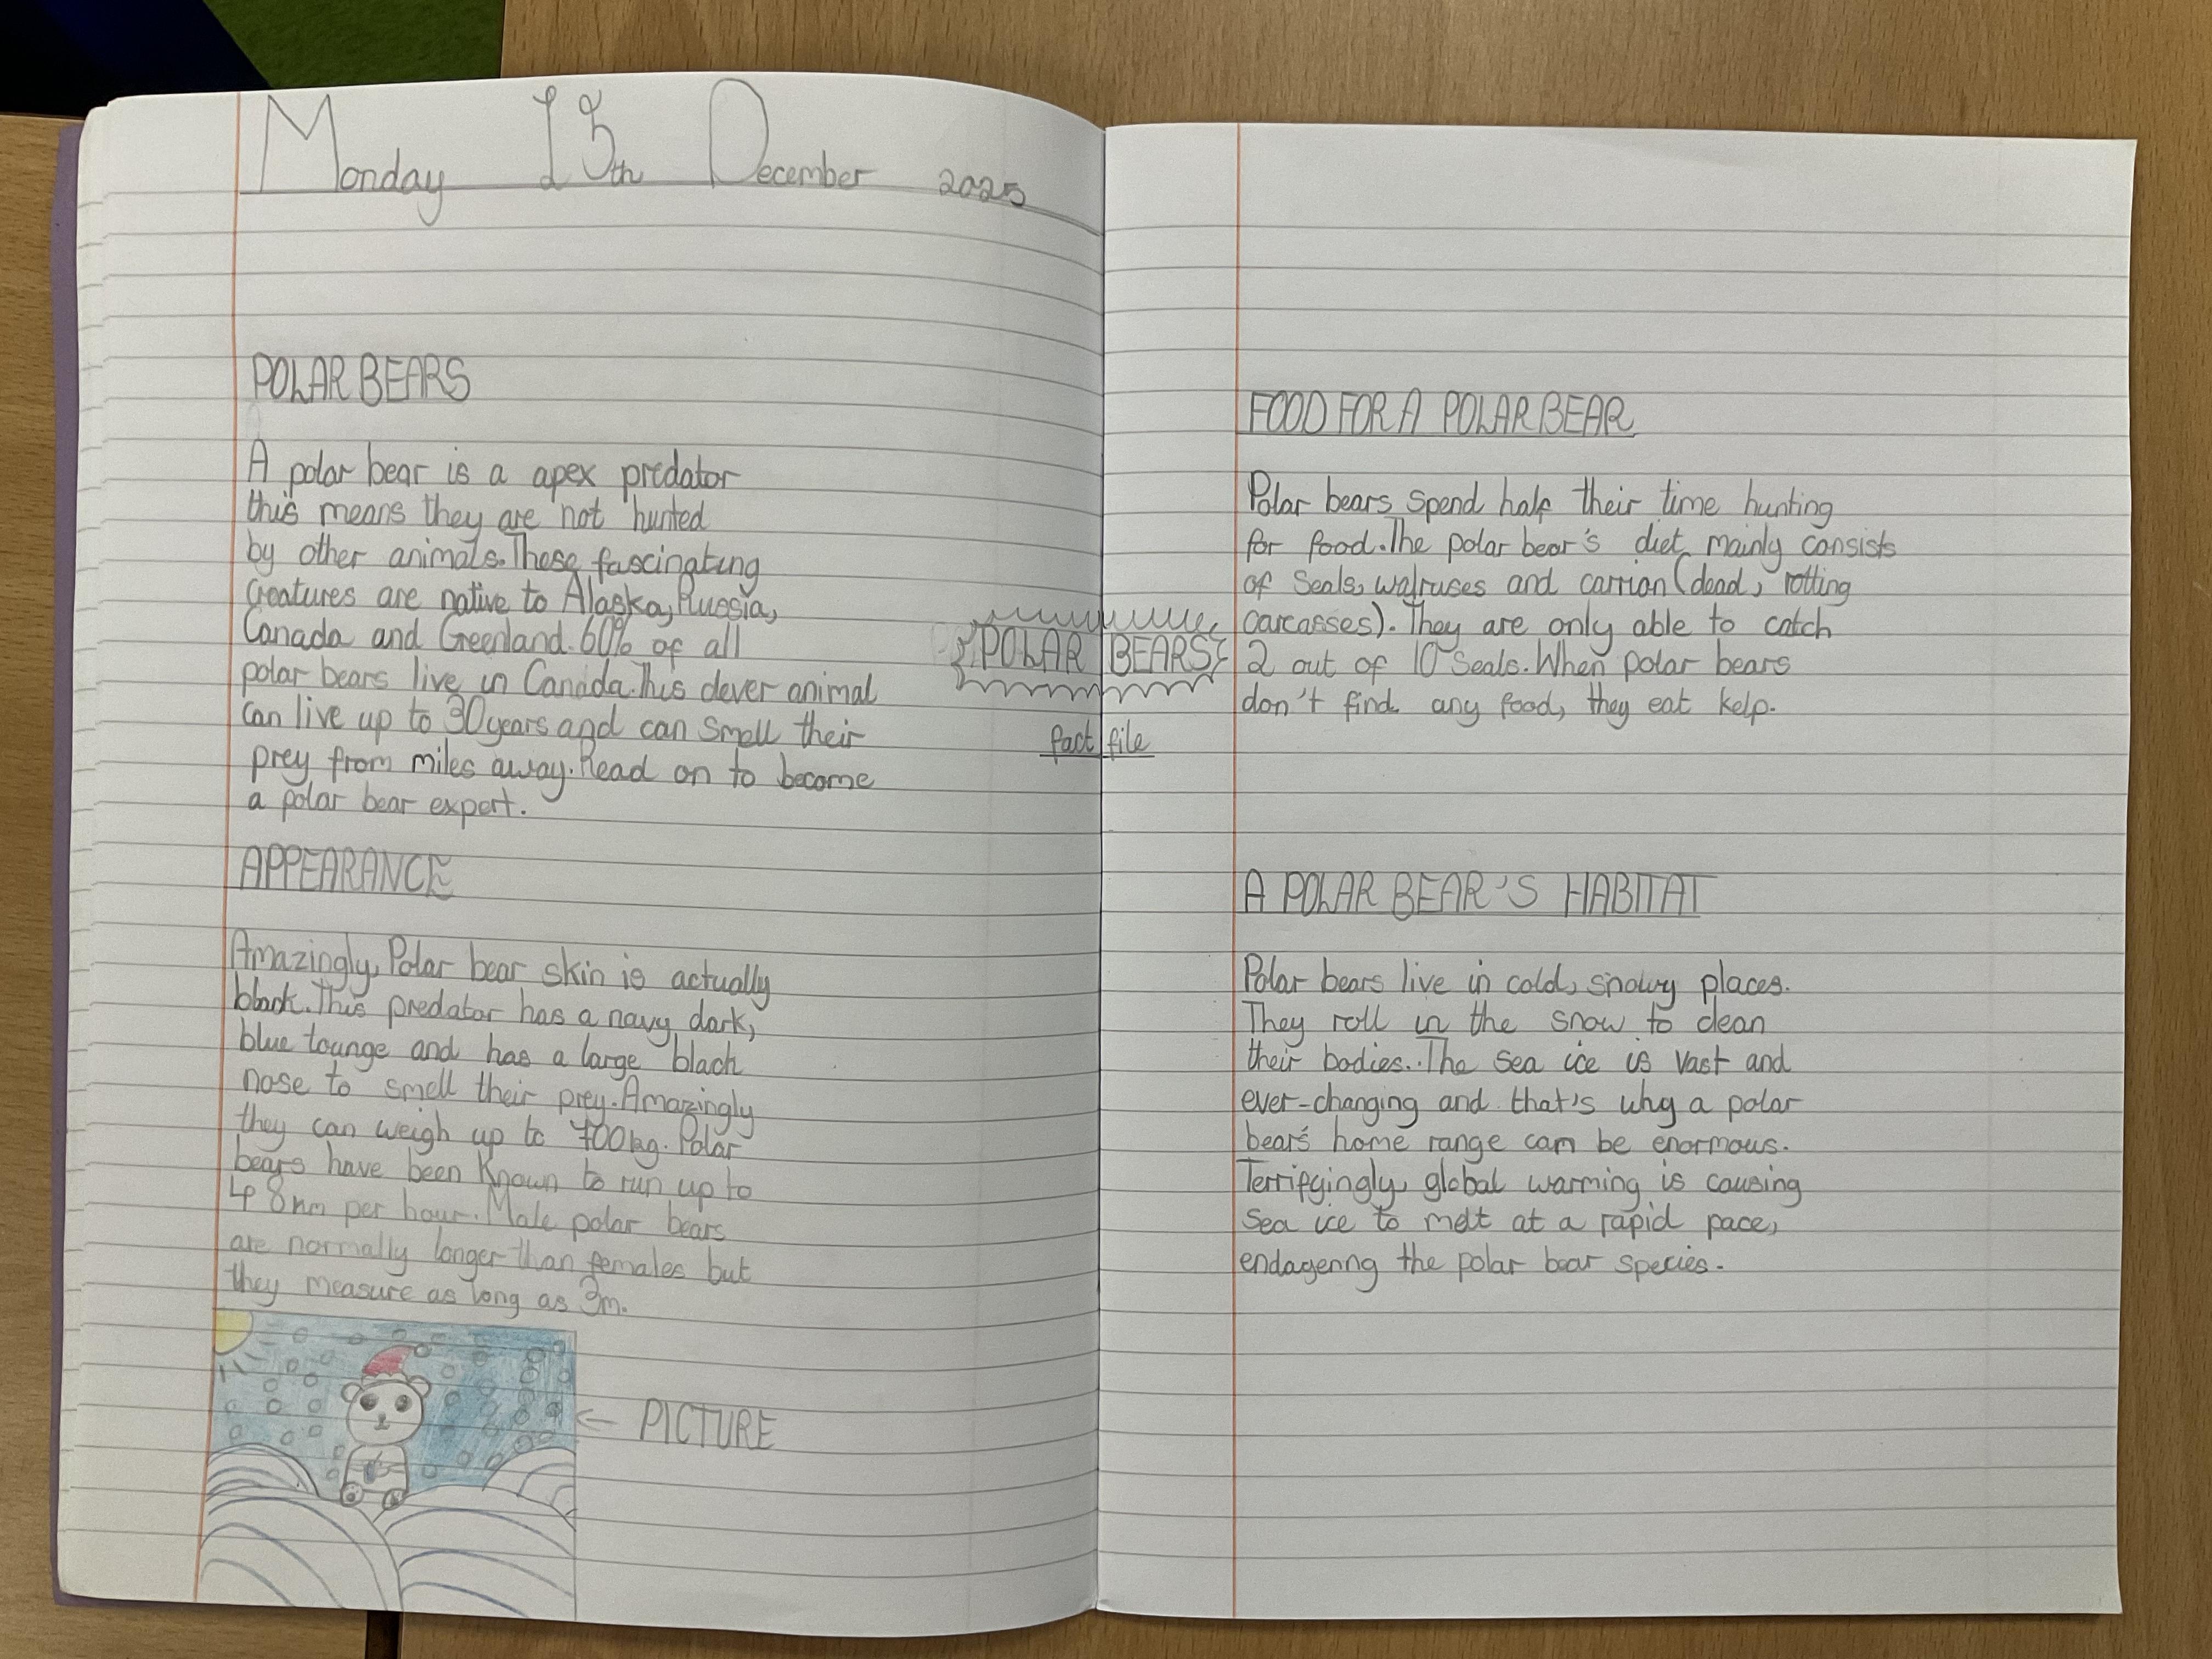 Monday 15th December 2025
POLAR BEARS
A polar bear is a apex predator
this means they are not hunted
by other animals. These fascinating
creatures are native to Alaska, Russia,
Canada and Greenland. 60% of all
polar bears live in Canada. This clever animal
can live up to 30 years and can smell their
prey from miles away. Read on to become
a polar bear expert.
APPEARANCE
Amazingly, Polar bear skin is actually
black. This predator has a navy dark,
blue tounge and has a large black
nose to smell their prey. Amazingly
they can weigh up to 700kg. Polar
bears have been known to run up to
48km per hour. Male polar bears
are normally longer than females but
they measure as long as 3m.
← PICTURE
POLAR BEARS
fact file
FOOD FOR A POLAR BEAR
Polar bears spend half their time hunting
for food. The polar bear's diet mainly consists
of seals, walruses and carrion (dead, rotting
carcasses). They are only able to catch
2 out of 10 seals. When polar bears
don't find any food, they eat kelp.
A POLAR BEAR'S HABITAT
Polar bears live in cold, snowy places.
They roll in the snow to clean
their bodies.. The sea ice is vast and
ever-changing and that's why a polar
bear's home range can be enormous.
Terrifyingly, global warming is causing
sea ice to melt at a rapid pace,
endagering the polar bear species.